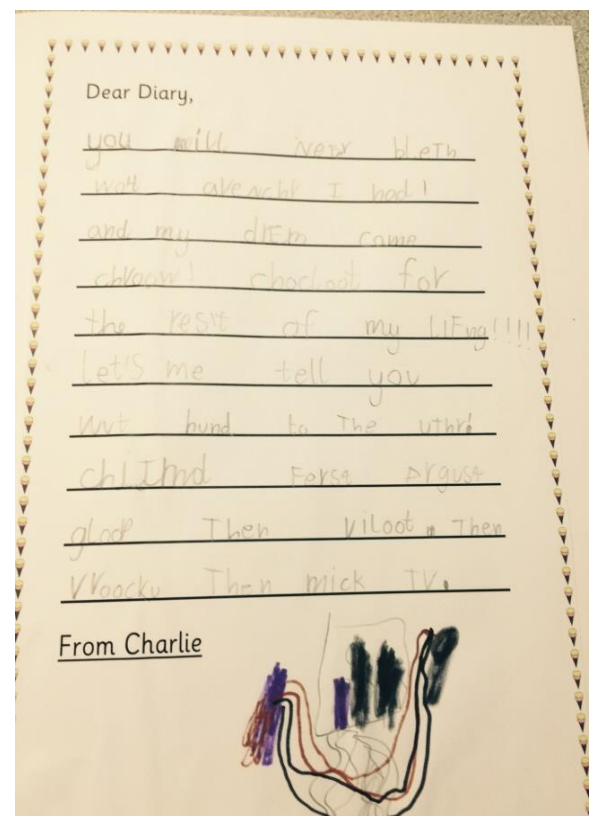 Dear Diary,
you will never bleth
wott avenchr I had!
and my drEm come
chroow! chocloot for
the resit of my LIFng!!!!
let's me tell you
wut hund to The uthr!
chLImd Forst Argust
gloop Then viloot. Then
Vroocku Then mick TV.
From Charlie